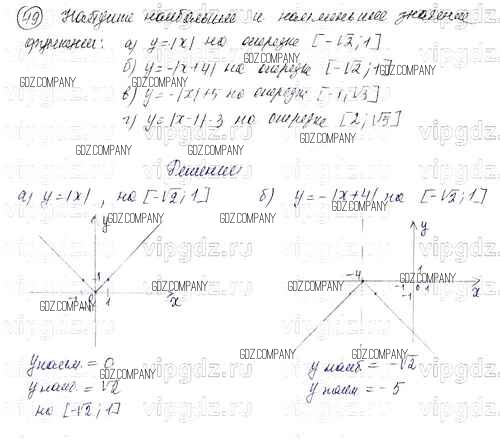 49 Найдите наибольшее и наименьшее значение
функции: а) y=|x| на отрезке [-√2; 1]
б) y=-|x+4| на отрезке [-√2; 1]
в) y=-|x|+5 на отрезке [-1; √3]
г) y=|x-1|-3 на отрезке [2; √5]
Решение
а) y=|x|, на [-√2; 1]
б) y=-|x+4| на [-√2; 1]
y
1
-1 0 1 x
y
-4 -1 0 1 x
1
-1
y наим. = 0
y наиб. = √2
на [-√2; 1]
y наиб. = -√2
y наим. = -5
GDZ.COMPANY
vipgdz.ru